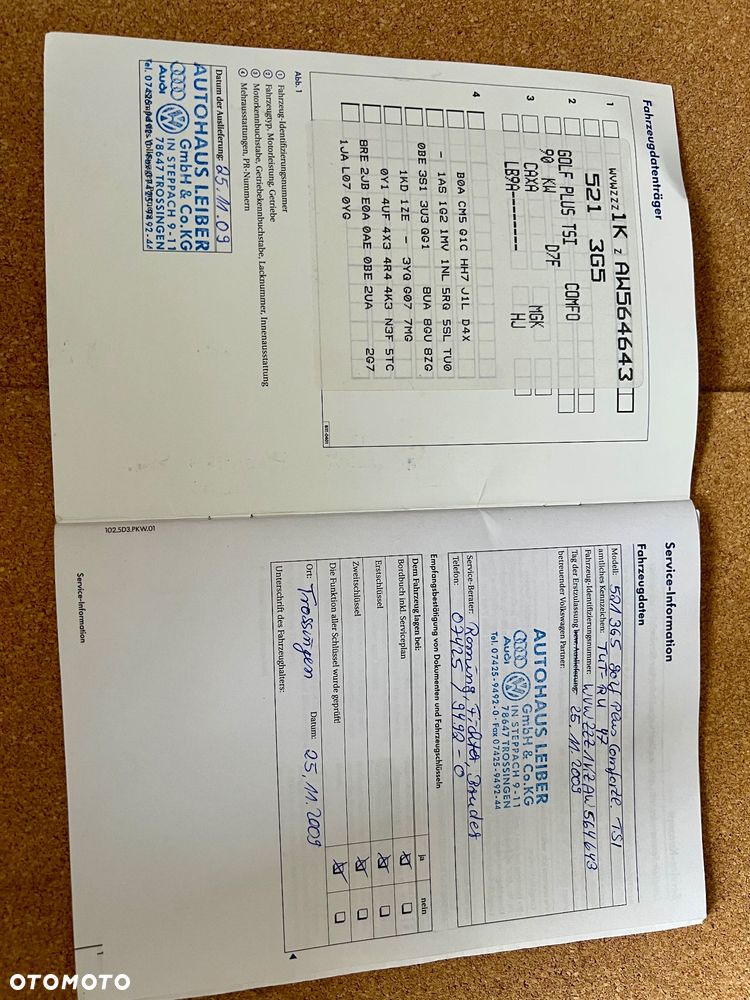 Fahrzeugdatenträger
1
2
3
4
WVWZZZ 1K Z AW564643
521 3G5
GOLF PLUS TSI COMFO
90 KW D7F
CAXA MGK
LB9A------- HJ
B0A CM5 Q1C HH7 J1L D4X
- 1AS 1G2 1MV 1NL 5RQ 5SL TU0
0BE 3S1 3U3 QG1 8VA 8GU 8ZG
1KD 1ZE - 3YQ G07 7MG
0Y1 4UF 4X3 4R4 4K3 N3F 5TC
8RE 2JB E0A 0AE 0BE 2UA
1JA L07 0YG 2G7
Abb. 1
① Fahrzeug-Identifizierungsnummer
② Fahrzeugtyp, Motorleistung, Getriebe
③ Motorkennbuchstabe, Getriebekennbuchstabe, Lacknummer, Innenausstattung
④ Mehrausstattungen, PR-Nummern
Datum der Auslieferung: 25.11.09
AUTOHAUS LEIBER
GmbH & Co.KG
IN STEPPACH 9-11
Audi 78647 TROSSINGEN
102.5D3.PKW.01
Service-Information
Fahrzeugdaten
Modell: 521 3G5 Golf Plus Comforte TSI
amtliches Kennzeichen: TUT-RU 47
Fahrzeug-Identifizierungsnummer: WVWZZZ1KZAW564643
Tag der Erstzulassung bzw. Auslieferung: 25.11.2009
betreuender Volkswagen Partner:
AUTOHAUS LEIBER
GmbH & Co.KG
IN STEPPACH 9-11
Audi 78647 TROSSINGEN
Tel. 07425-9492-0 · Fax 07425-9492-44
Service-Berater:
Telefon: 07425 / 9492-0
Empfangsbestätigung von Dokumenten und Fahrzeugschlüsseln
Dem Fahrzeug lagen bei: ja nein
Bordbuch inkl. Serviceplan
Erstschlüssel
Zweitschlüssel
Die Funktion aller Schlüssel wurde geprüft!
Ort: Trossingen Datum: 25.11.2009
Unterschrift des Fahrzeughalters:
Service-Information
1
OTOMOTO